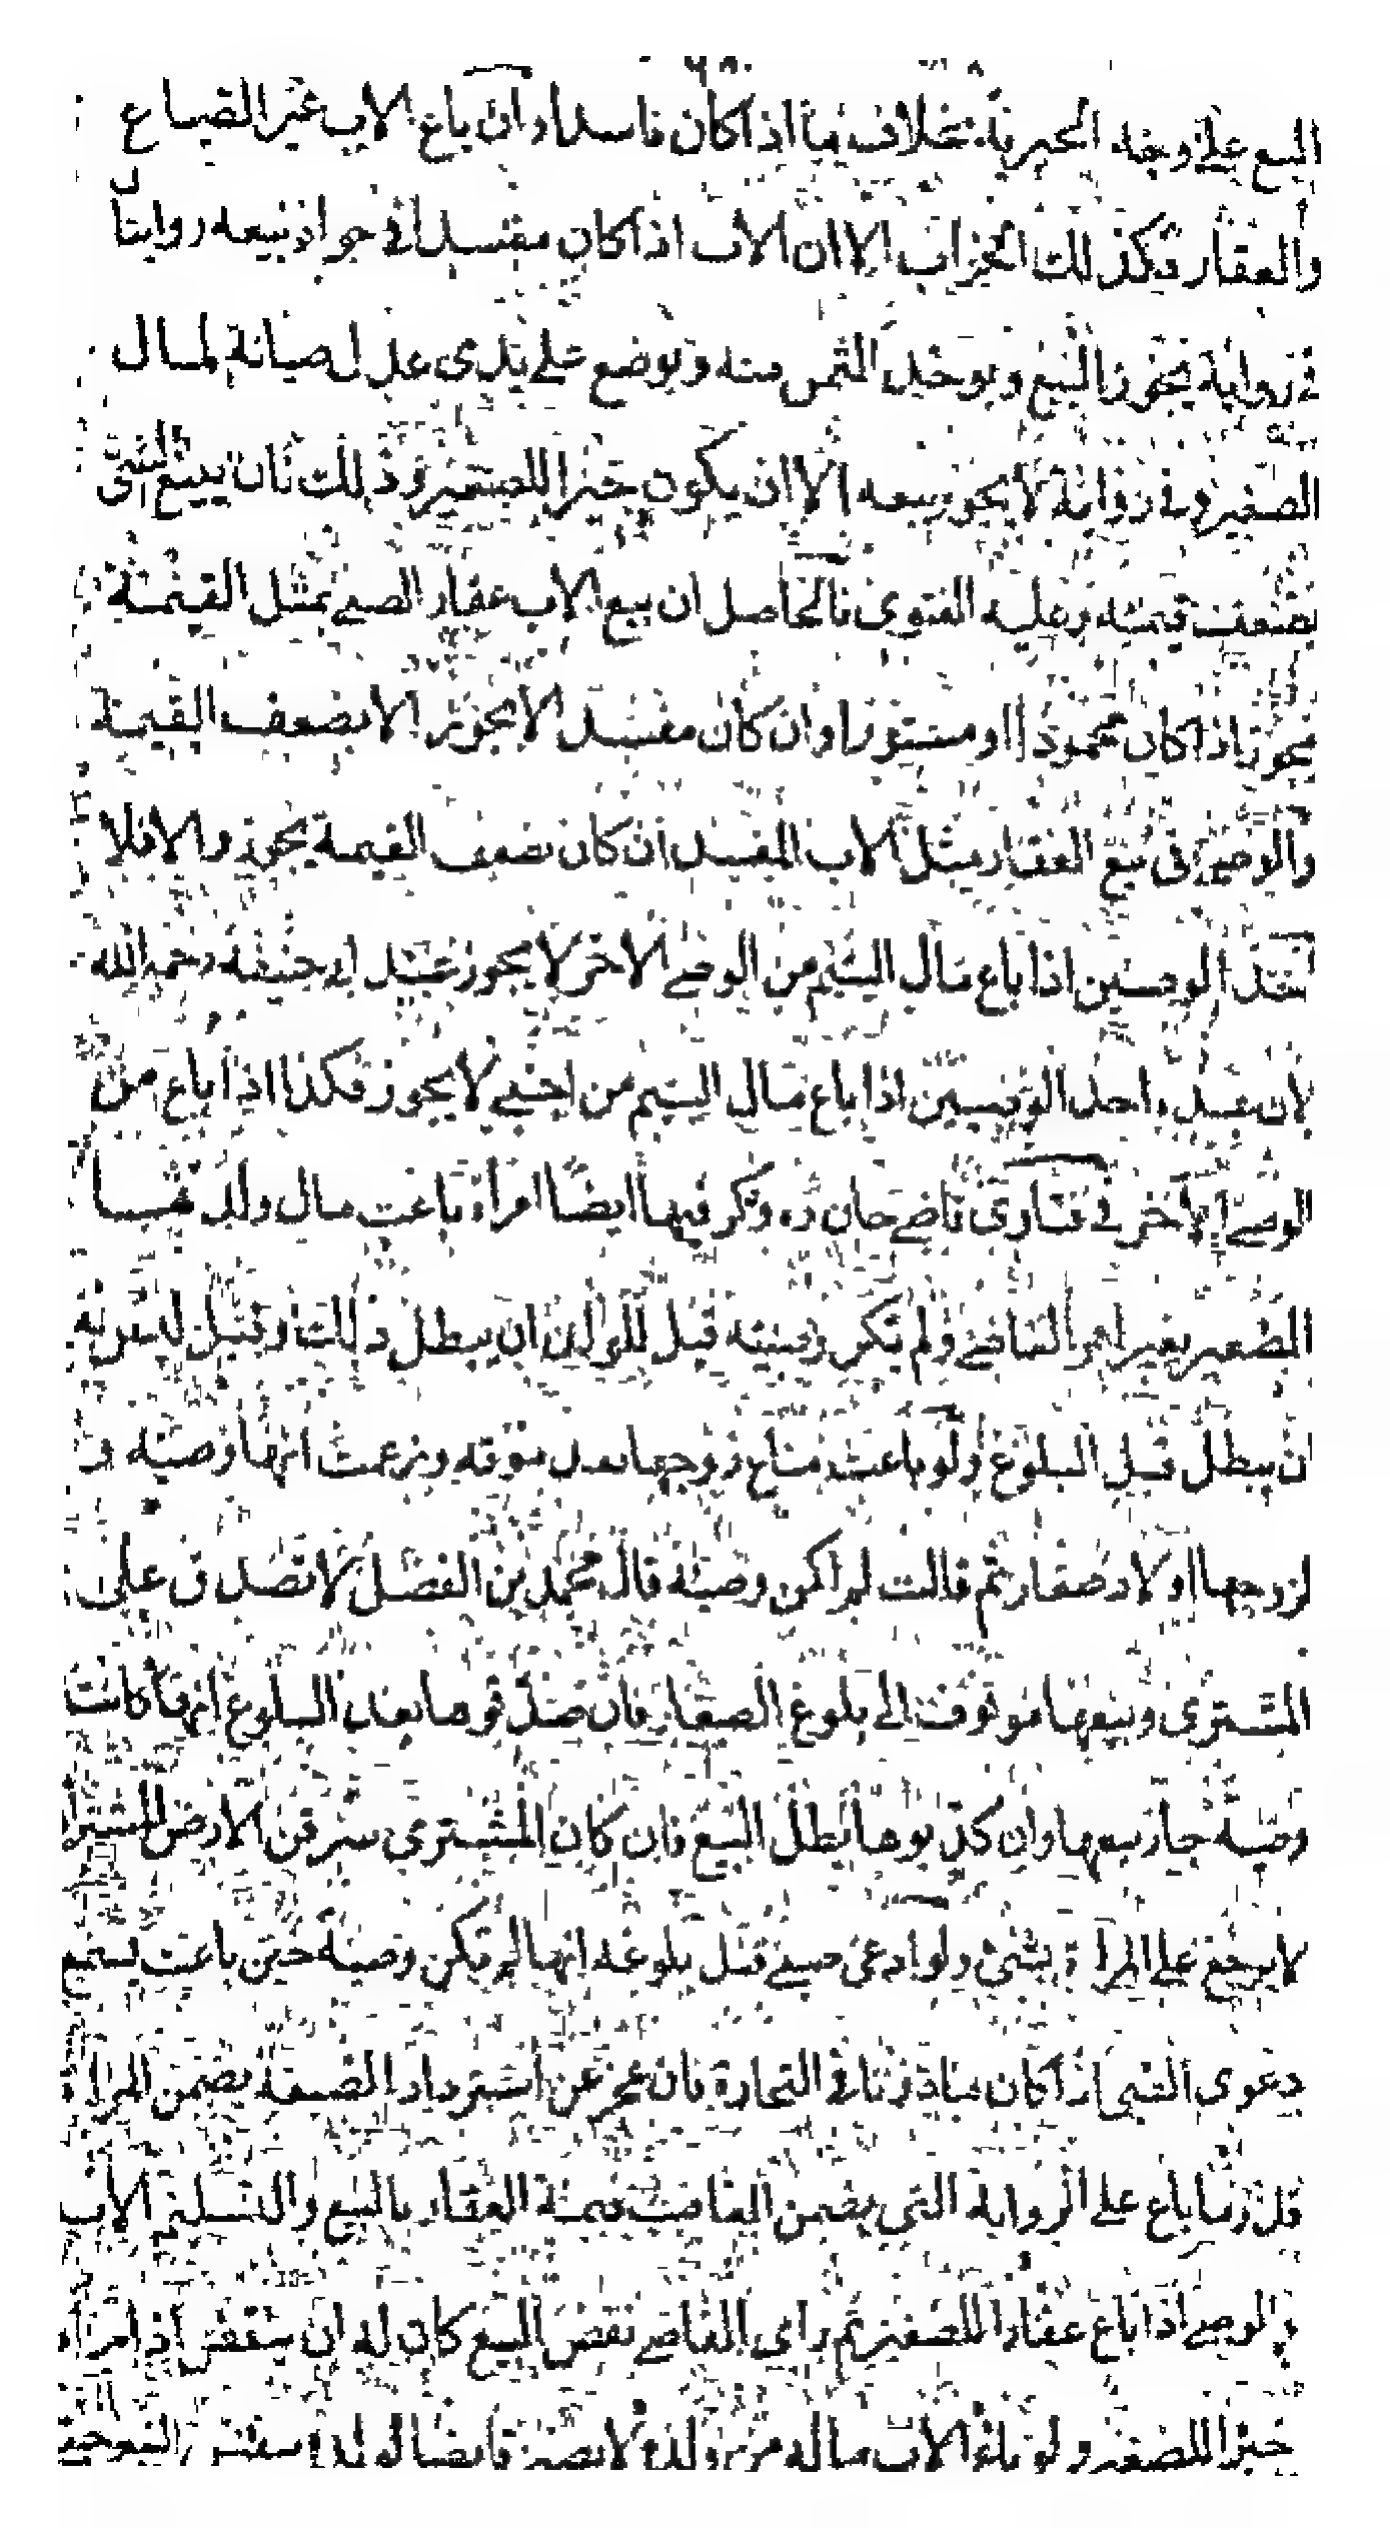 البيع على وجه الخيرية بخلاف ما اذا كان فاسدا وان باع الاب غير الضياع
والعقار فكذلك الجواب الا ان الاب اذا كان مفسدا في جواز بيعه روايتان
في رواية يجوز البيع ويوخذ الثمن منه ويوضع على يدى عدل صيانة لمال
الصغير وفي رواية لا يجوز بيعه الا ان يكون خيرا للصغير وذلك بان يبيع الشئ
بضعف قيمته وعليه الفتوى فالحاصل ان بيع الاب عقار الصبي بمثل القيمة
يجوز اذا كان محمودا او مستورا وان كان مفسدا لا يجوز الا بضعف القيمة
والوصي في بيع العقار مثل الاب المفسد ان كان بضعف القيمة يجوز والا فلا
احد الوصيين اذا باع مال اليتيم من الوصي الاخر لا يجوز عند ابي حنيفة رحمه الله
لان عنده احد الوصيين اذا باع مال اليتيم من اجنبي لا يجوز فكذا اذا باع من
الوصي الاخر في فتاوى قاضي خان وذكر فيها ايضا امراة باعت مال ولدها
الصغير بغير امر القاضي ولم تكن وصية قيل للولد ان يبطل ذلك وقيل ليس له
ان يبطل قبل البلوغ ولو باعت متاع زوجها بعد موته وزعمت انها وصية و
لزوجها اولاد صغار ثم قالت لم اكن وصية قال محمد بن الفضل لا تصدق على
المشترى وبيعها موقوف الى بلوغ الصغار فان صدقوها بعد البلوغ انها كانت
وصية جاز بيعها وان كذبوها بطل البيع فان كان المشترى سرقن الارض المشتراة
لا يرجع على المراة بشئ ولو ادعى صبي قبل بلوغه انها لم تكن وصية حين باعت يسمع
دعوى الصبي اذا كان ماذونا في التجارة فان عجز عن استرداد الضيعة يضمن المراة
باع على الرواية التي يضمن الغاصب قيمة العقار بالبيع والتسليم الاب
والوصي اذا باع عقارا للصغير ثم راى القاضي نقض البيع كان له ان ينقض اذا راه
خيرا للصغير ولو باع الاب ماله من ولده لا يصير قابضا لولده بنفس البيع حتى